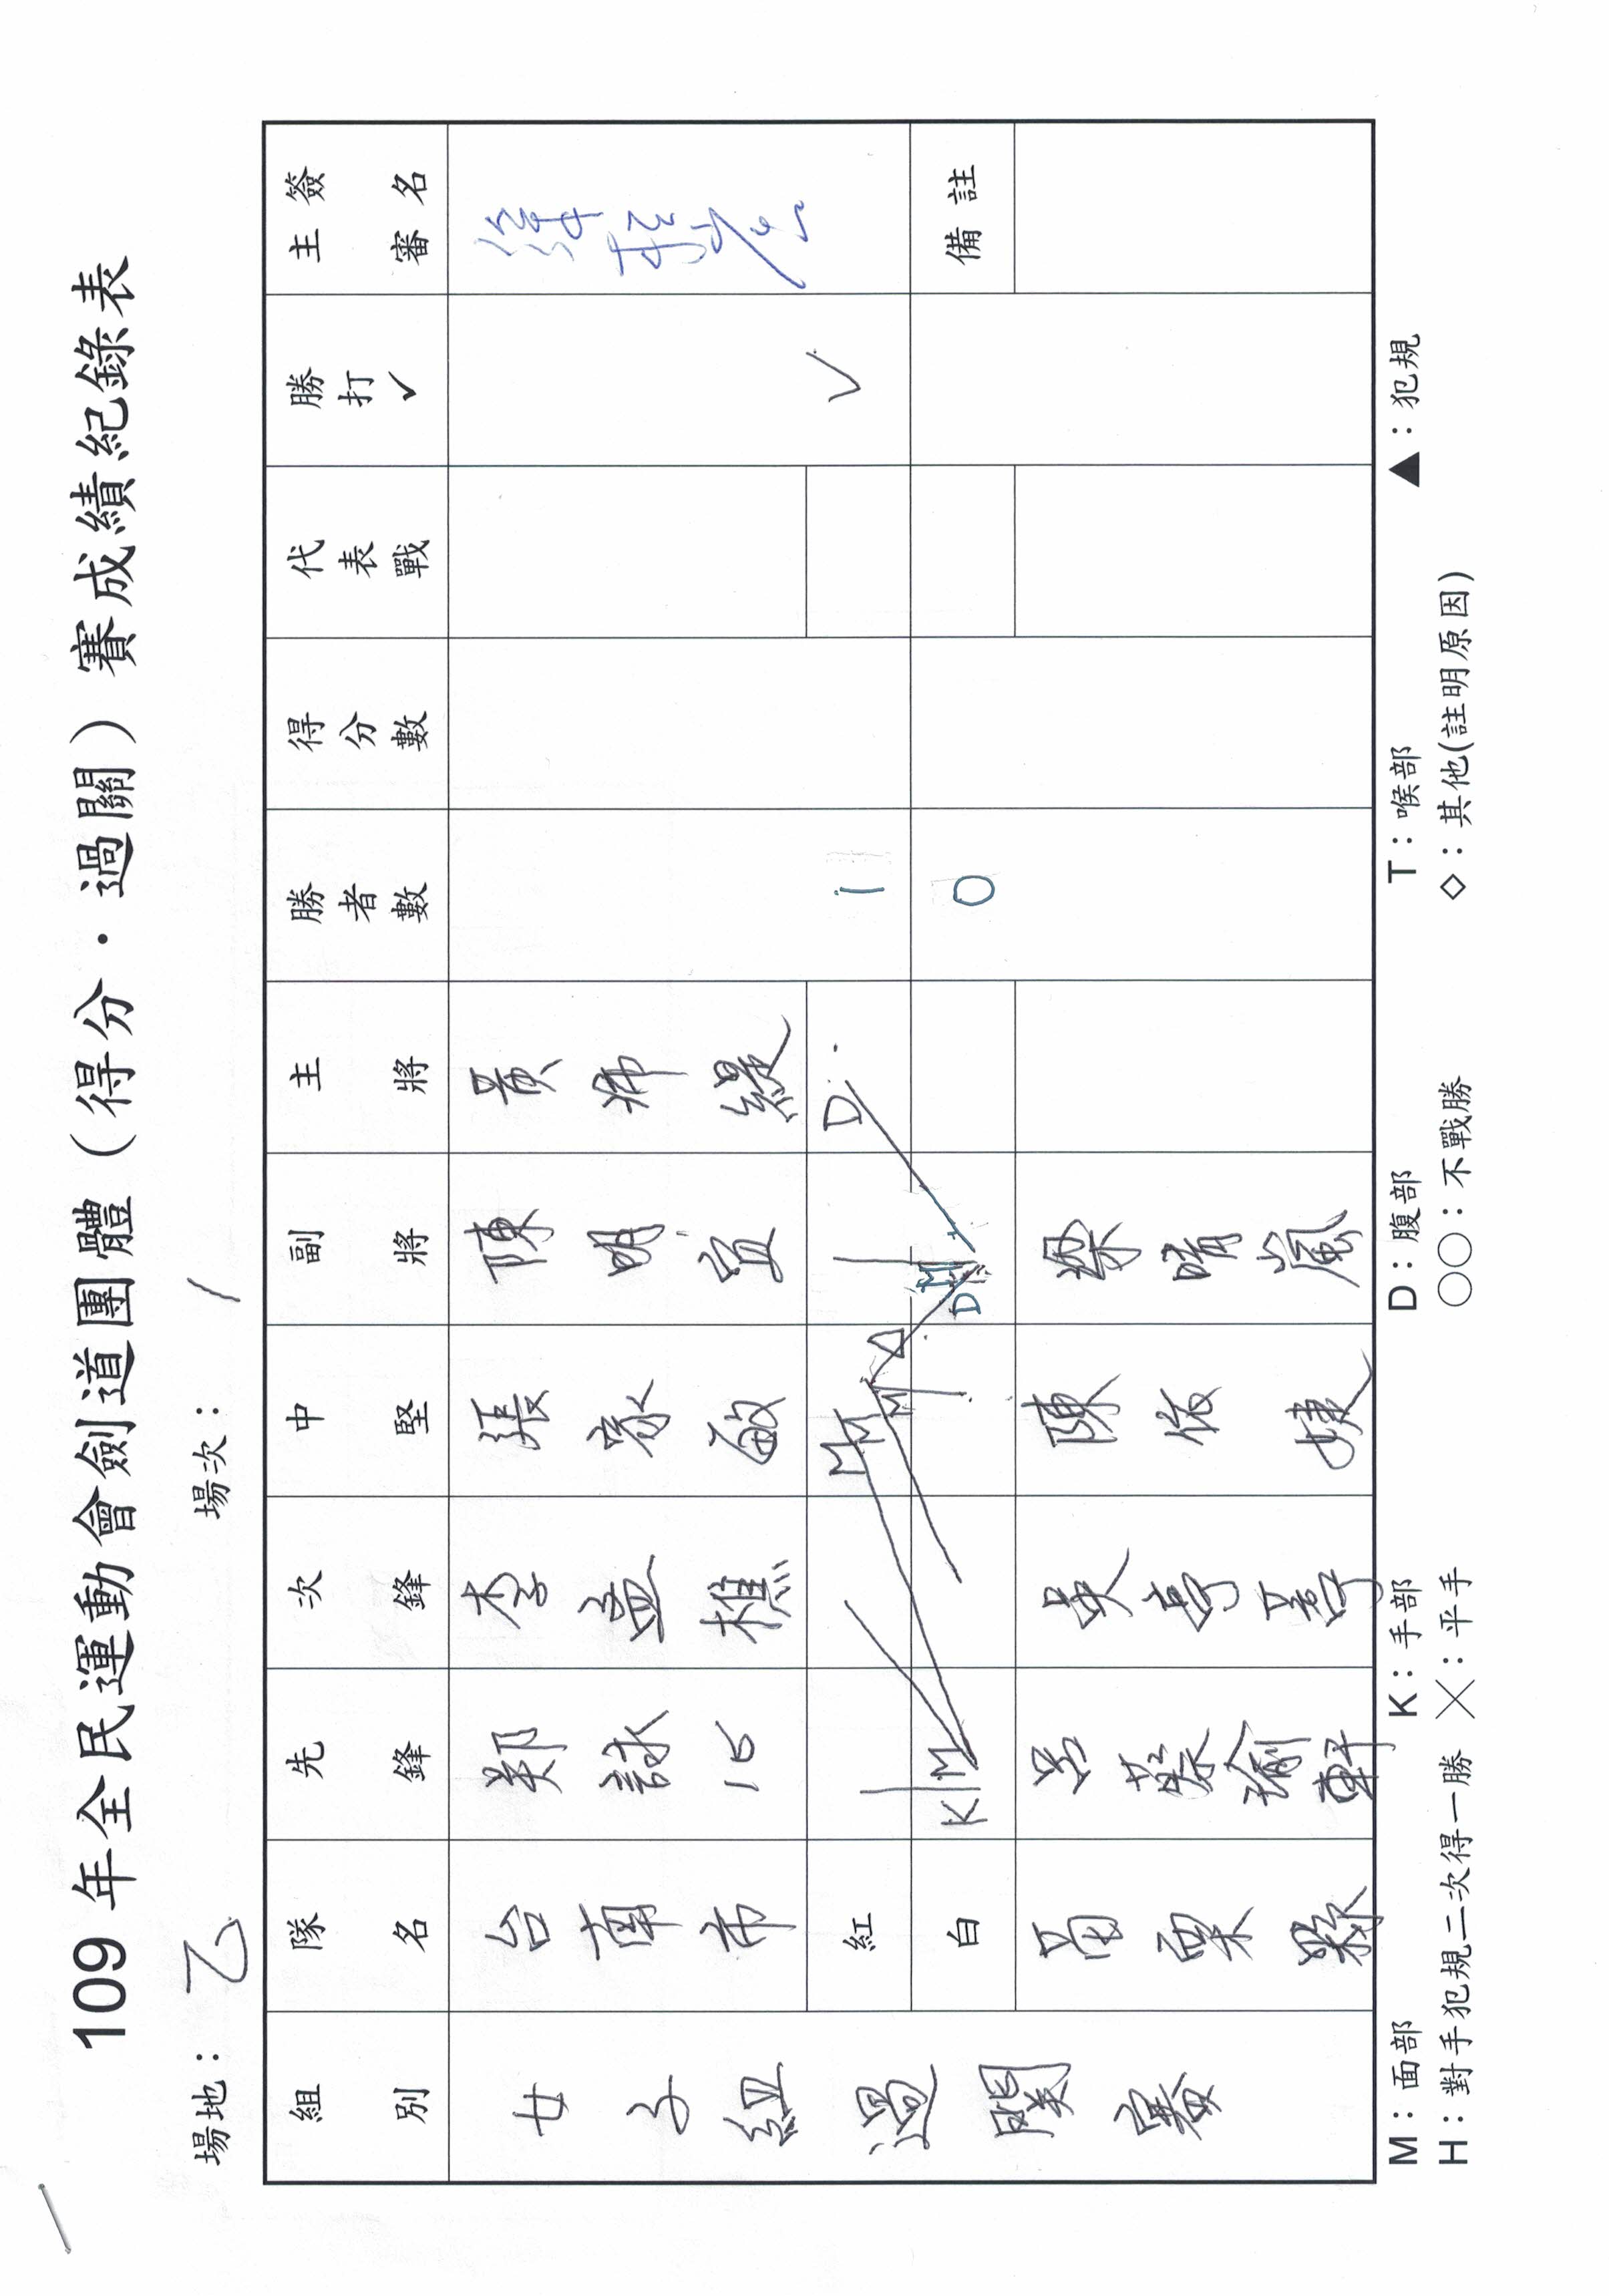 109 年全民運動會劍道團體（得分．過關）賽成績紀錄表
場地： 乙 場次： 1
組別 隊名 先鋒 次鋒 中堅 副將 主將 勝者數 得分數 代表戰 勝打✓ 主審簽名
女子組過關賽
台南市 鄭詠 李孟樵 張家敏 陳明
紅 M M D 1 ✓
白 K M M D M 0 備註
苗栗縣 呂蔡瑜軒 吳亭 陳依婕 梁晴嵐
M：面部 K：手部 D：腹部 T：喉部 ▲：犯規
H：對手犯規二次得一勝 ╳：平手 ○○：不戰勝 ◇：其他(註明原因)